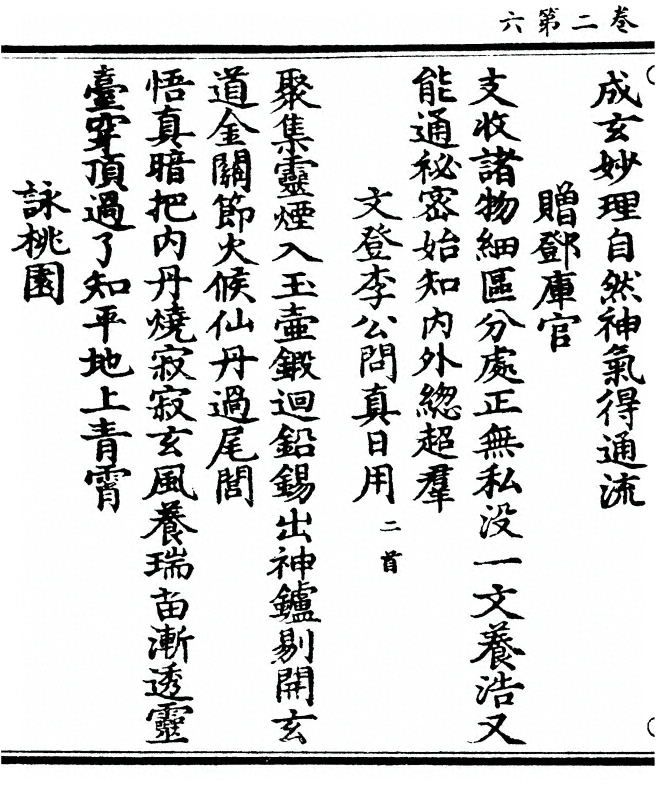 卷二第六
成玄妙理自然神氣得通流
贈鄧庫官
支收諸物細區分處正無私没一文養浩又
能通祕密始知内外總超羣
文登李公問真日用二首
聚集靈煙入玉壺鍛迴鉛錫出神鑪剔開玄
道金關節火候仙丹過尾閭
悟真暗把内丹燒寂寂玄風養瑞苗漸透靈
臺穿頂過了知平地上青霄
詠桃園